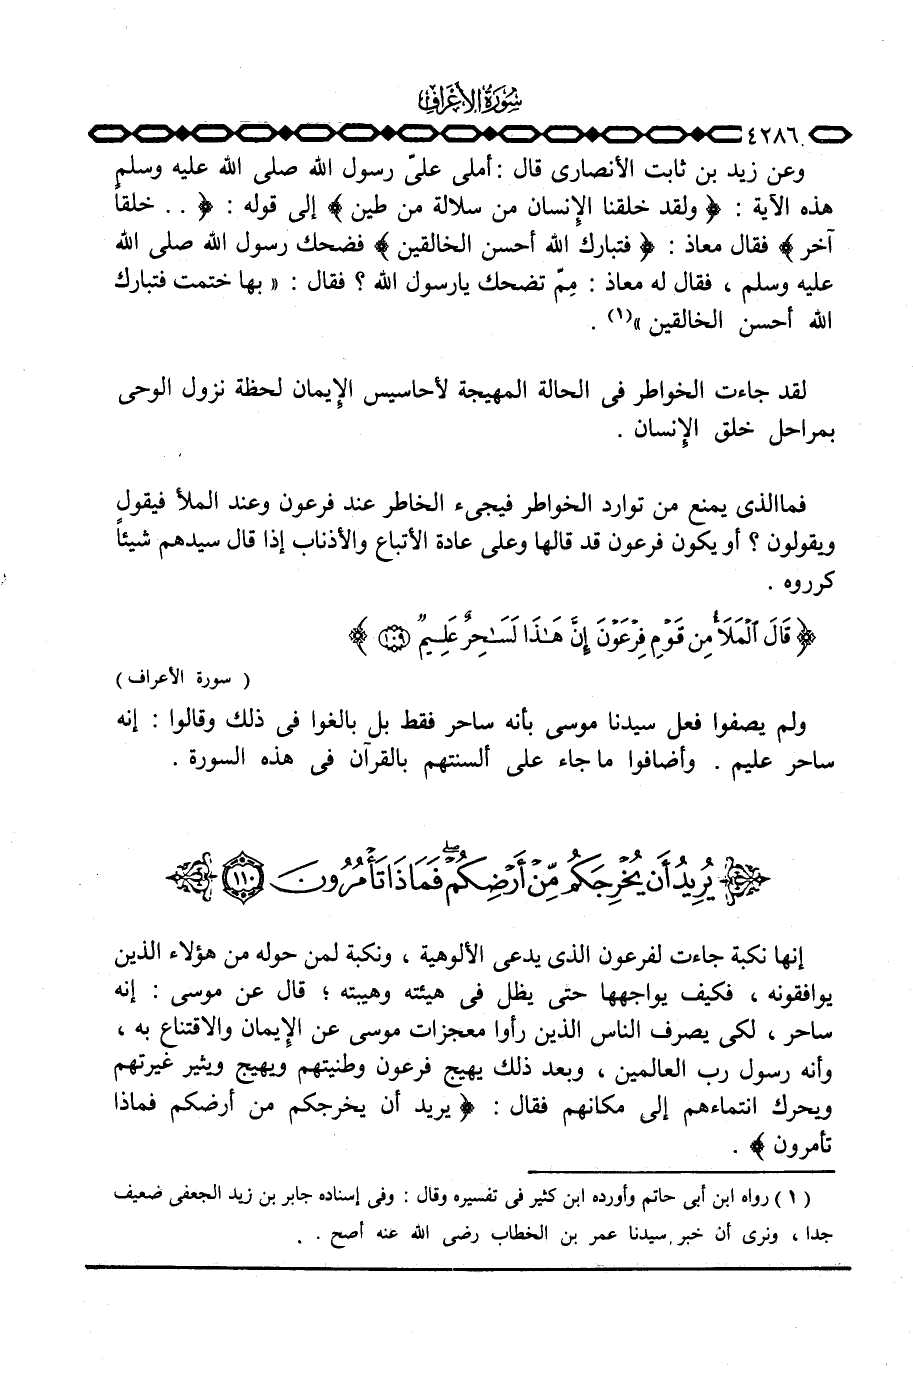 سُورَةُ الأَعْرَافِ
٤٢٨٦
وعن زيد بن ثابت الأنصارى قال : أملى علىّ رسول الله صلى الله عليه وسلم
هذه الآية : ﴿ ولقد خلقنا الإنسان من سلالة من طين ﴾ إلى قوله : ﴿ . . خلقاً
آخر ﴾ فقال معاذ : ﴿ فتبارك الله أحسن الخالقين ﴾ فضحك رسول الله صلى الله
عليه وسلم ، فقال له معاذ : مِمّ تضحك يارسول الله ؟ فقال : « بها ختمت فتبارك
الله أحسن الخالقين »(١) .
لقد جاءت الخواطر فى الحالة المهيجة لأحاسيس الإيمان لحظة نزول الوحى
بمراحل خلق الإنسان .
فماالذى يمنع من توارد الخواطر فيجىء الخاطر عند فرعون وعند الملأ فيقول
ويقولون ؟ أو يكون فرعون قد قالها وعلى عادة الأتباع والأذناب إذا قال سيدهم شيئاً
كرروه .
﴿ قَالَ ٱلْمَلَأُ مِن قَوْمِ فِرْعَوْنَ إِنَّ هَٰذَا لَسَٰحِرٌ عَلِيمٌ ١٠٩ ﴾
( سورة الأعراف )
ولم يصفوا فعل سيدنا موسى بأنه ساحر فقط بل بالغوا فى ذلك وقالوا : إنه
ساحر عليم . وأضافوا ما جاء على ألسنتهم بالقرآن فى هذه السورة .
﴿ يُرِيدُ أَن يُخْرِجَكُم مِّنْ أَرْضِكُمْ ۖ فَمَاذَا تَأْمُرُونَ ١١٠ ﴾
إنها نكبة جاءت لفرعون الذى يدعى الألوهية ، ونكبة لمن حوله من هؤلاء الذين
يوافقونه ، فكيف يواجهها حتى يظل فى هيئته وهيبته ؛ قال عن موسى : إنه
ساحر ، لكى يصرف الناس الذين رأوا معجزات موسى عن الإيمان والاقتناع به ،
وأنه رسول رب العالمين ، وبعد ذلك يهيج فرعون وطنيتهم ويهيج ويثير غيرتهم
ويحرك انتماءهم إلى مكانهم فقال : ﴿ يريد أن يخرجكم من أرضكم فماذا
تأمرون ﴾ .
( ١ ) رواه ابن أبى حاتم وأورده ابن كثير فى تفسيره وقال : وفى إسناده جابر بن زيد الجعفى ضعيف
جدا ، ونرى أن خبر سيدنا عمر بن الخطاب رضى الله عنه أصح . .